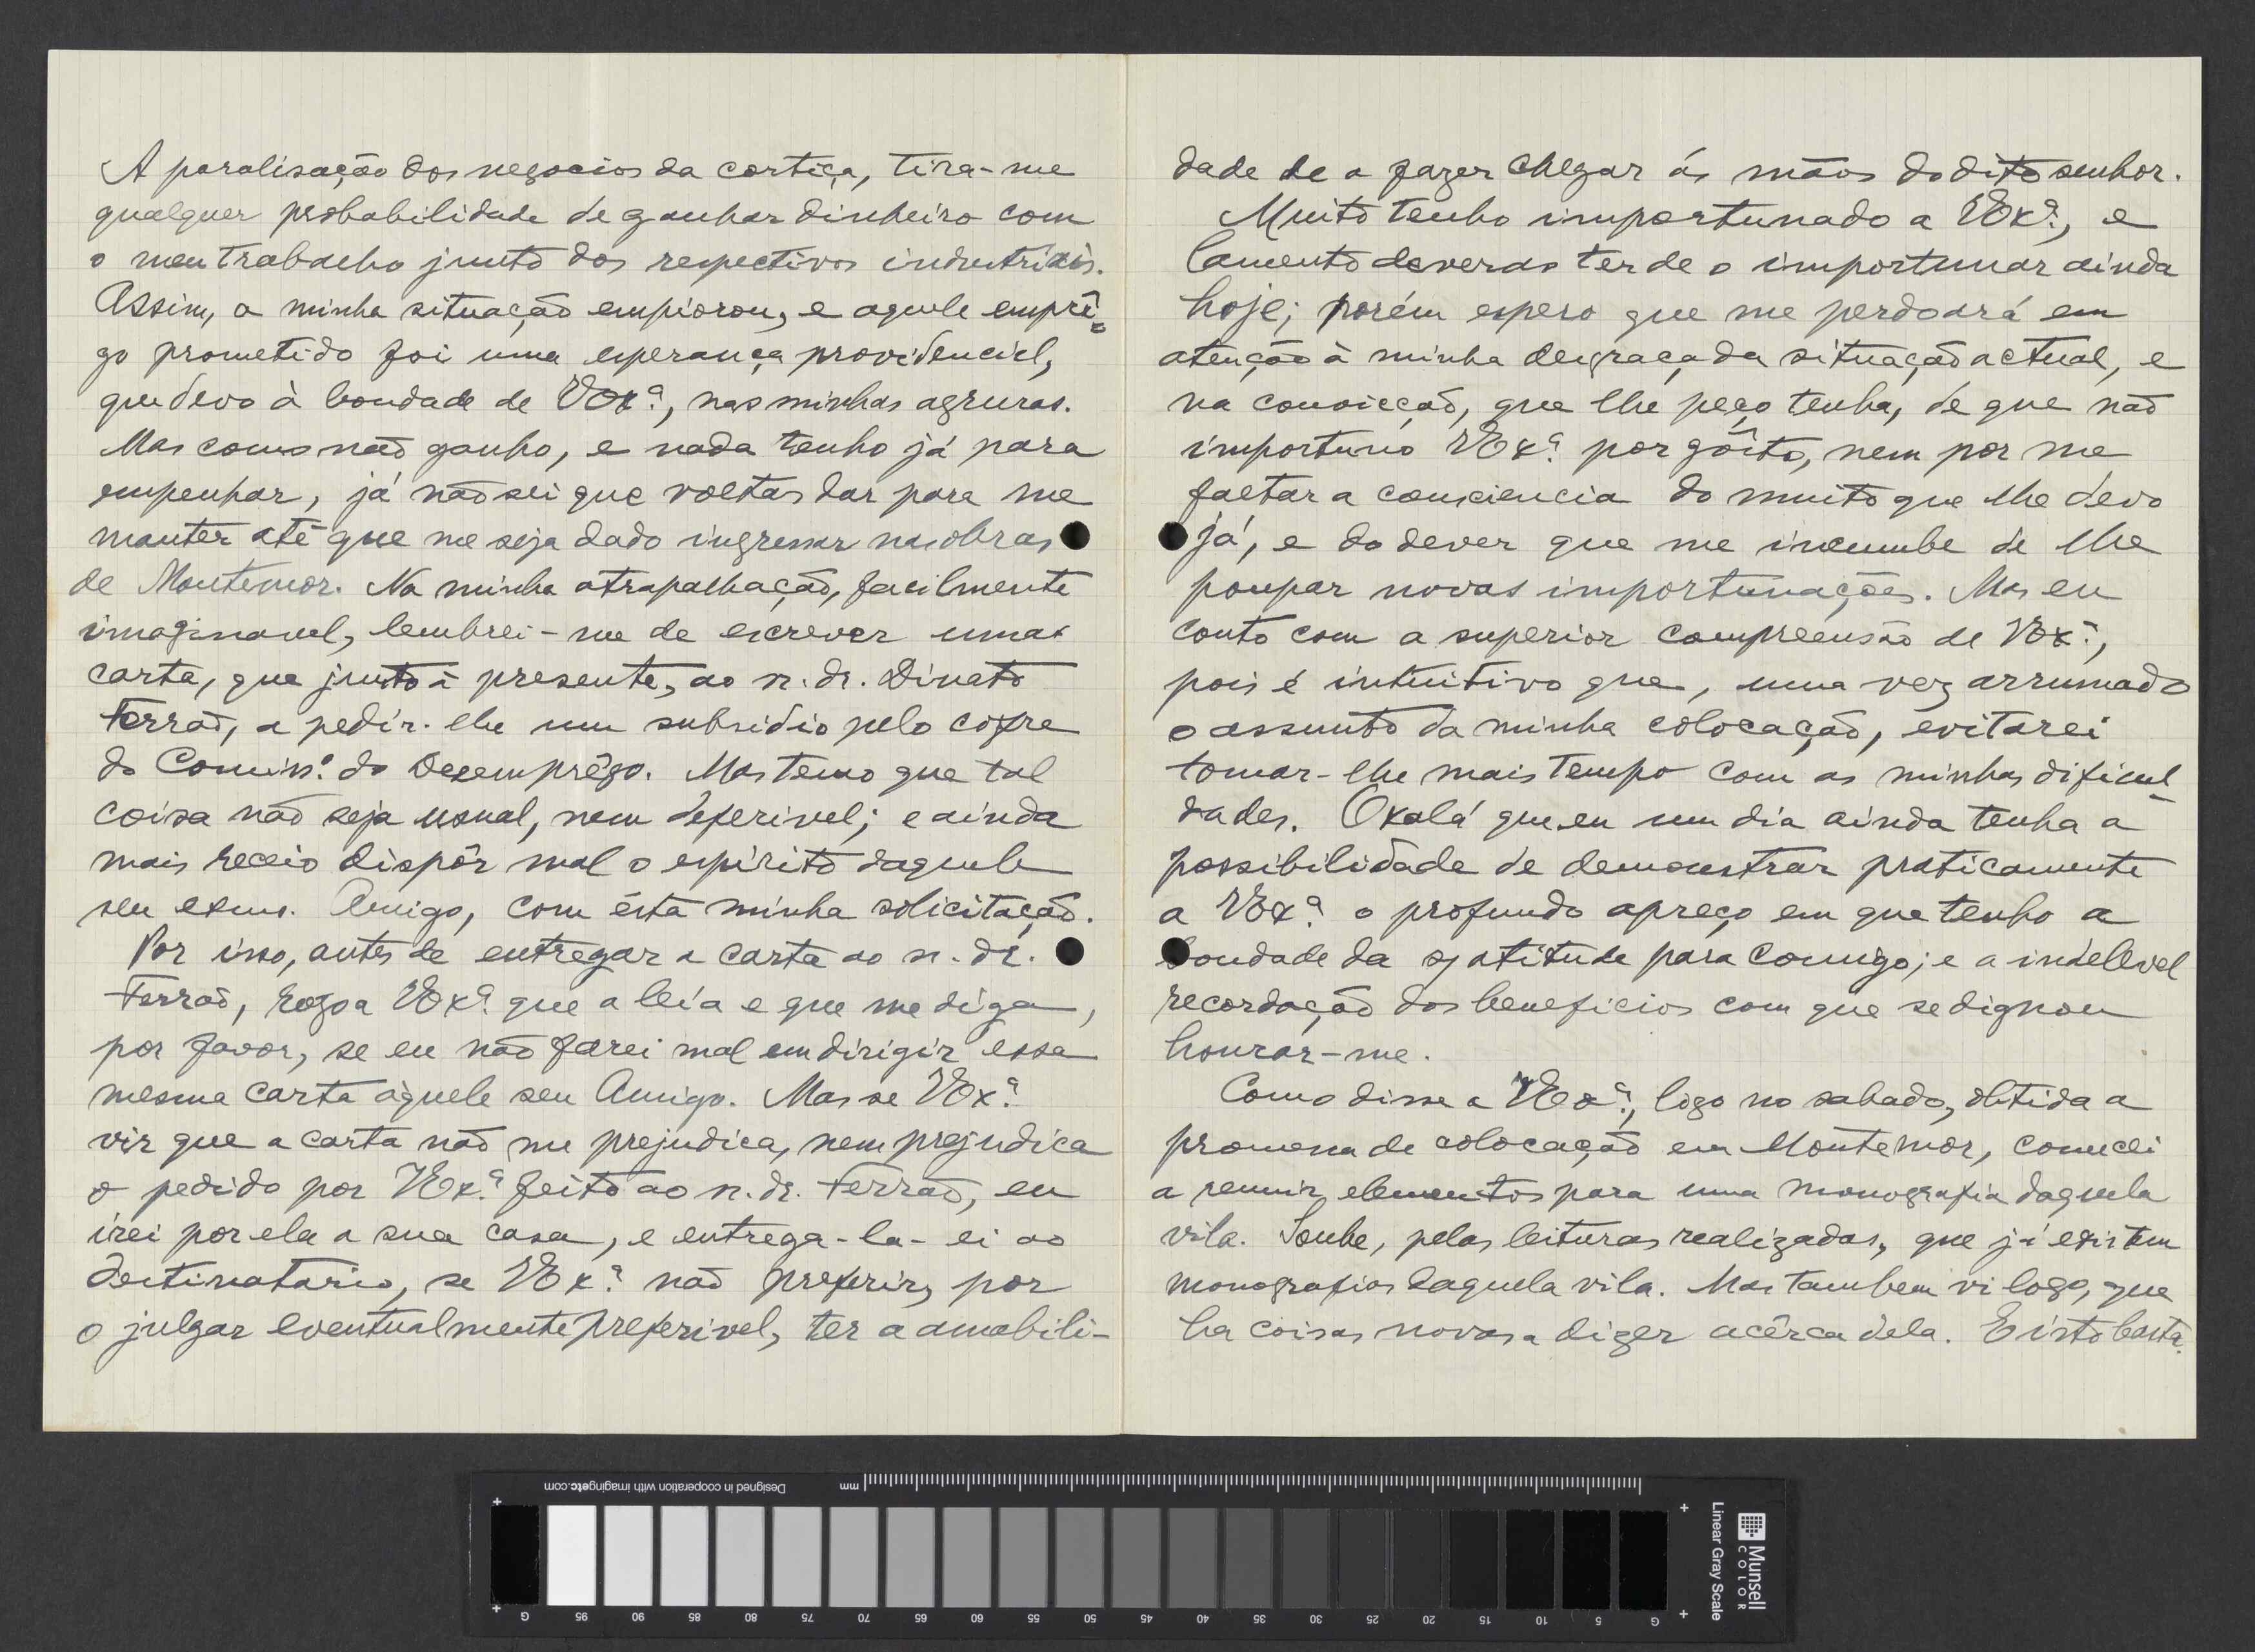 A paralisação dos negocios da cortiça, tira-me
qualquer probabilidade de ganhar dinheiro com
o meu trabalho junto dos respectivos industriais.
Assim, a minha situação empiorou, e aquele emprê-
go prometido foi uma esperança providencial,
que devo à bondade de VExª., nas minhas agruras.
Mas como não ganho, e nada tenho já para
empenhar, já não sei que voltas dar para me
manter até que me seja dado ingressar nas obras
de Montemor. Na minha atrapalhação, facilmente
imaginavel, lembrei-me de escrever uma
carta, que junto à presente, ao sr. dr.
Ferrão, a pedir-lhe um subsidio pelo cofre
do Comiss.º do Desemprêgo. Mas temo que tal
coisa não seja usual, nem deferivel; e ainda
mais receio dispôr mal o espirito daquele
seu exmo. Amigo, com esta minha solicitação.
Por isso, antes de entregar a carta ao sr. dr.
Ferrão, rogo a VExª. que a leia e que me diga,
por favor, se eu não farei mal em dirigir essa
mesma carta àquele seu Amigo. Mas se VExª.
vir que a carta não me prejudica, nem prejudica
o pedido por VExª. feito ao sr. dr. Ferrão, eu
irei por ela a sua casa, e entrega-la-ei ao
destinatario, se VExª. não preferir, por
o julgar eventualmente preferivel, ter a amabili-
dade de a fazer chegar ás mãos do dito senhor.
Muito tenho importunado a VExª., e
lamento deveras ter de o importunar ainda
hoje; porém espero que me perdoará em
atenção à minha desgraçada situação actual, e
na convicção, que lhe peço tenha, de que não
importuno VExª. por gôsto, nem por me
faltar a consciencia do muito que lhe devo
já, e do dever que me incumbe de lhe
poupar novas importunações. Mas eu
conto com a superior compreensão de VExª.,
pois é intuitivo que, uma vez arrumado
o assunto da minha colocação, evitarei
tomar-lhe mais tempo com as minhas dificul-
dades. Oxalá que eu um dia ainda tenha a
possibilidade de demonstrar praticamente
a VExª. o profundo apreço em que tenho a
bondade da s/ atitude para comigo; e a indelevel
recordação dos beneficios com que se dignou
honrar-me.
Como disse a VExª., logo no sabado, obtida a
promessa de colocação em Montemor, comecei
a reunir elementos para uma monografia daquela
vila. Soube, pelas leituras realizadas, que já existem
monografias daquela vila. Mas tambem vi logo, que
ha coisas novas a dizer acêrca dela. E isto basta.
Designed in cooperation with imagingetc.com
mm
Munsell
COLOR
Linear Gray Scale
G 95 90 85 80 75 70 65 60 55 50 45 40 35 30 25 20 15 10 5 G